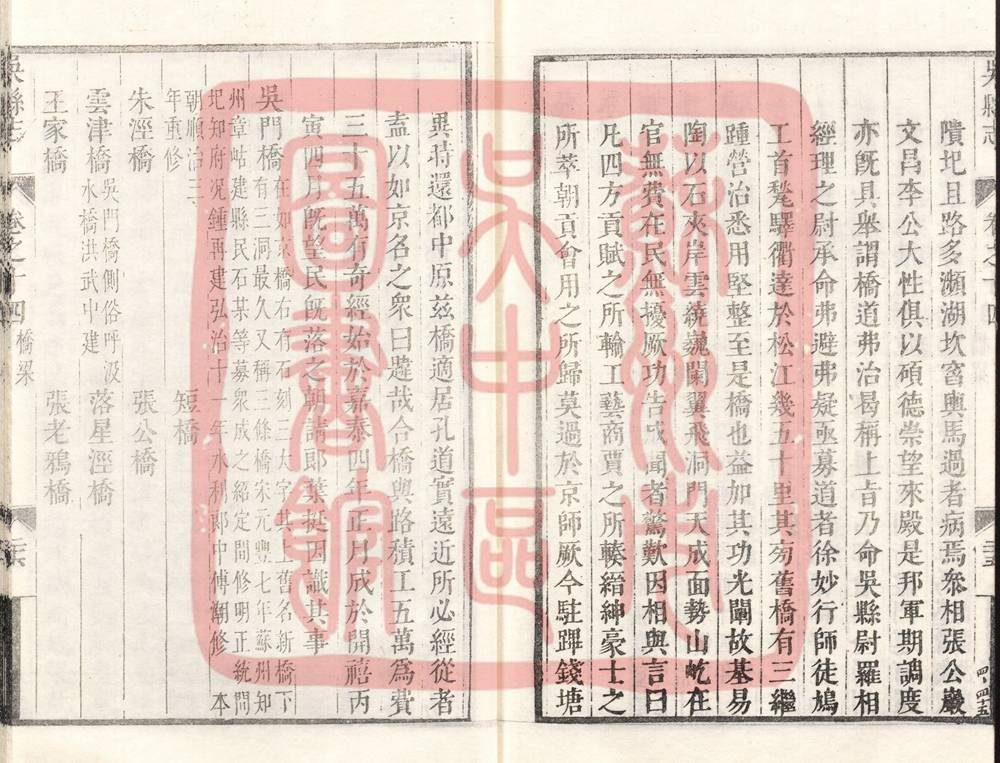 吳縣志
卷之十四
隤圯且路多瀕湖坎窞輿馬過者病焉參相張公巖
文昌李公大性俱以碩德崇望來殿是邦軍期調度
亦旣具舉謂橋道弗治曷稱上旨乃命吳縣尉羅相
經理之尉承命弗避弗疑亟募道者徐妙行師徒鳩
工首甃驛衢達於松江幾五十里其旁舊橋有三繼
踵營治悉用堅整至是橋也益加其功光闡故基易
陶以石夾岸雲繞巍闌翼飛洞門天成面勢山屹在
官無費在民無擾厥功告成聞者驚歎因相與言曰
凡四方貢賦之所輸工藝商賈之所輳縉紳豪士之
所萃朝貢會用之所歸莫過於京師厥今駐蹕錢塘
異時還都中原兹橋適居孔道實遠近所必經從者
盍以如京名之衆曰韙哉合橋與路積工五萬爲費
三十五萬有奇經始於嘉泰四年正月成於開禧丙
寅四月旣望民旣落之朝請郎葉挺因識其事
吳門橋在如京橋右有石刻三大字其上舊名新橋下
有三洞最久又稱三條橋宋元豐七年蘇州知
州章岵建縣民石某等募衆成之紹定間修明正統間
圯知府况鍾再建弘治十一年水利郎中傅潮修 本
朝順治三
年重修 短橋
朱涇橋 張公橋
雲津橋吳門橋側俗呼汲
水橋洪武中建 落星涇橋
王家橋 張老鴉橋
吳縣志
卷之十四 橋梁
蘇州市
吳中區
圖書館